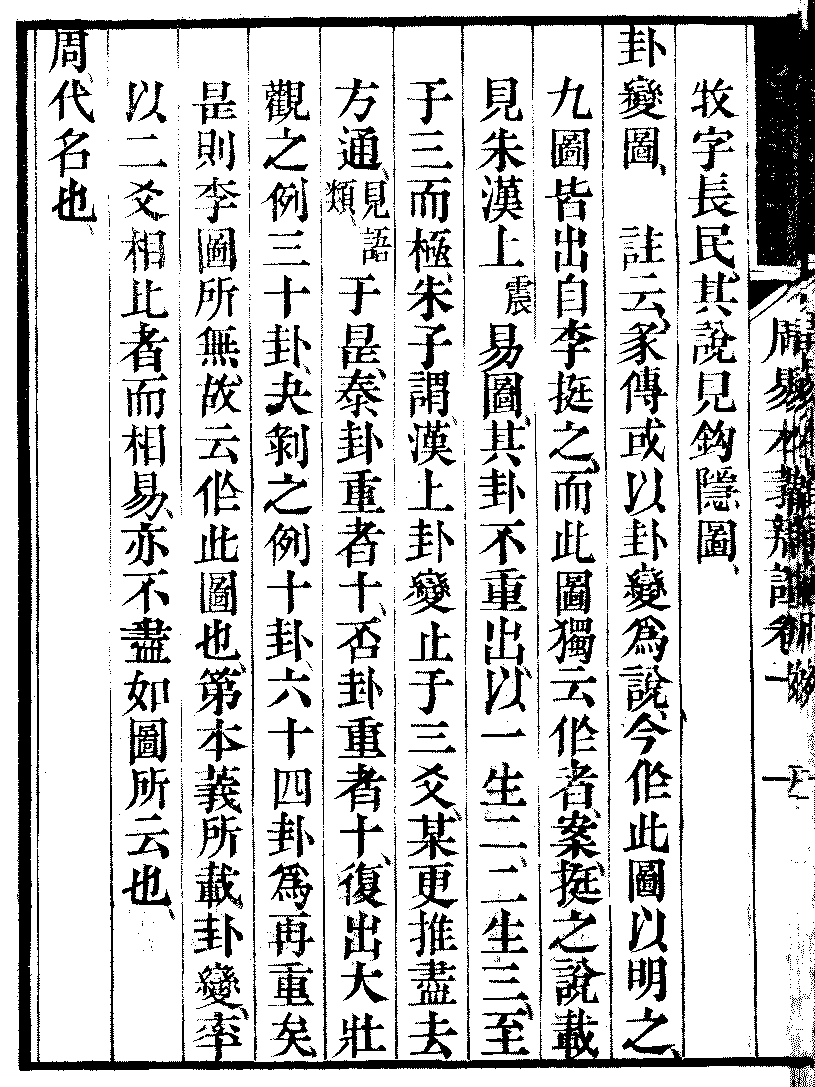 牧字長民、其說見鈎隱圖、
卦變圖、　註云、彖傳或以卦變爲說、今作此圖以明之、
九圖皆出自李挺之、而此圖獨云作者、案挺之說載
見朱漢上震易圖、其卦不重出、以一生二、二生三、至
于三而極、朱子謂、漢上卦變止于三爻、某更推盡去
方通、見語類、于是、泰卦重者十、否卦重者十、復出大壯
觀之例三十卦、夬剝之例十卦、六十四卦爲再重矣
是則李圖所無、故云作此圖也、第本義所載卦變、率
以二爻相比者而相易、亦不盡如圖所云也、
周代名也、
周易本義辨證卷一